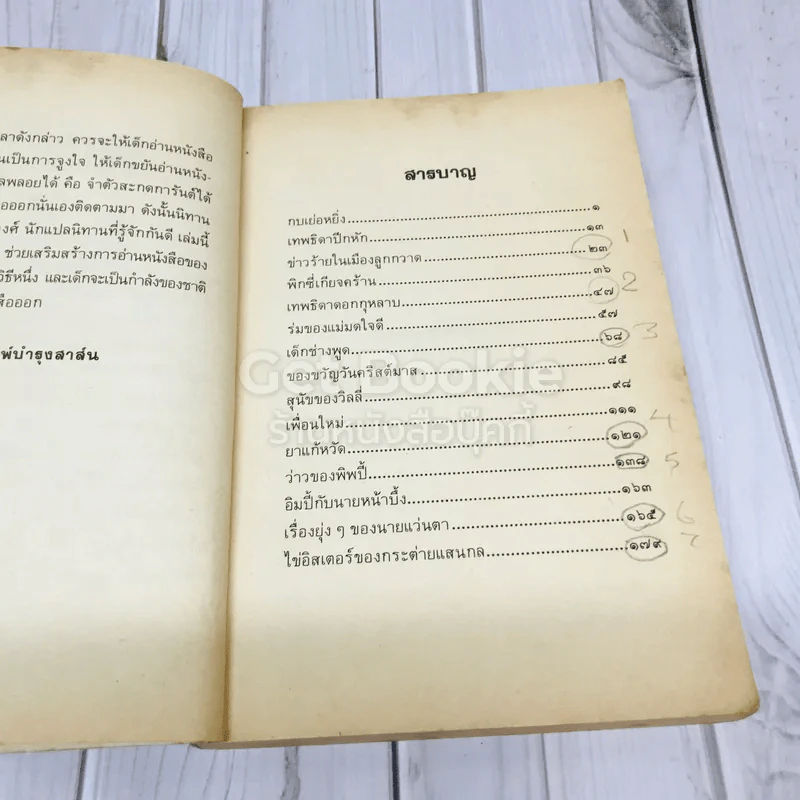 ลาดังกล่าว ควรจะให้เด็กอ่านหนังสือ
นเป็นการจูงใจ ให้เด็กขยันอ่านหนัง-
ลพลอยได้ คือ จำตัวสะกดการันต์ได้
ือออกนั่นเองติดตามมา ดังนั้นนิทาน
งศ์ นักแปลนิทานที่รู้จักกันดี เล่มนี้
ช่วยเสริมสร้างการอ่านหนังสือของ
วิธีหนึ่ง และเด็กจะเป็นกำลังของชาติ
สือออก
พ์บำรุงสาส์น
สารบาญ
กบเย่อหยิ่ง ๑
เทพธิดาปีกหัก ๑๓
ข่าวร้ายในเมืองลูกกวาด ๒๓ 1
พิกซี่เกียจคร้าน ๓๖
เทพธิดาดอกกุหลาบ ๔๗ 2
ร่มของแม่มดใจดี ๕๗
เด็กช่างพูด ๖๘ 3
ของขวัญวันคริสต์มาส ๘๕
สุนัขของวิลลี่ ๙๘
เพื่อนใหม่ ๑๑๑
ยาแก้หวัด ๑๒๑ 4
ว่าวของพิพปี้ ๑๓๘ 5
อิมปี้กับนายหน้าบึ้ง ๑๖๓
เรื่องยุ่ง ๆ ของนายแว่นตา ๑๖๕ 6
ไข่อิสเตอร์ของกระต่ายแสนกล ๑๗๙ 7
Get Bookie
ร้านหนังสือบุ๊คกี้